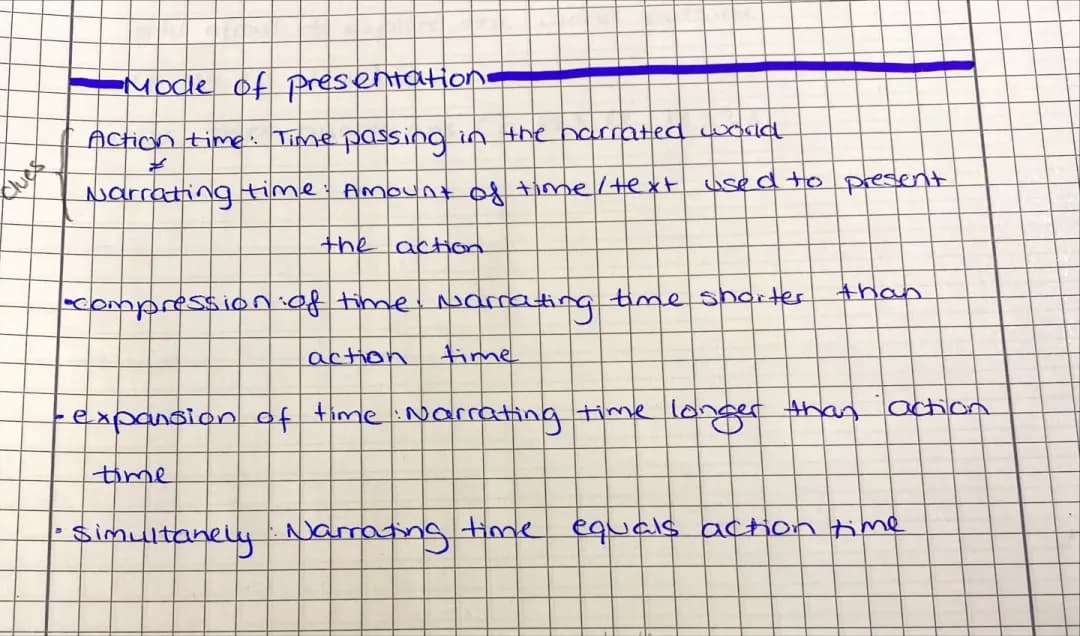 Mode of presentation
Action time: Time passing in the narrated world
≠
clues
Narrating time: Amount of time/text used to present
the action
-compression of time: Narrating time shorter than
action time
-expansion of time: Narrating time longer than action
time
• simultanely: Narrating time equals action time